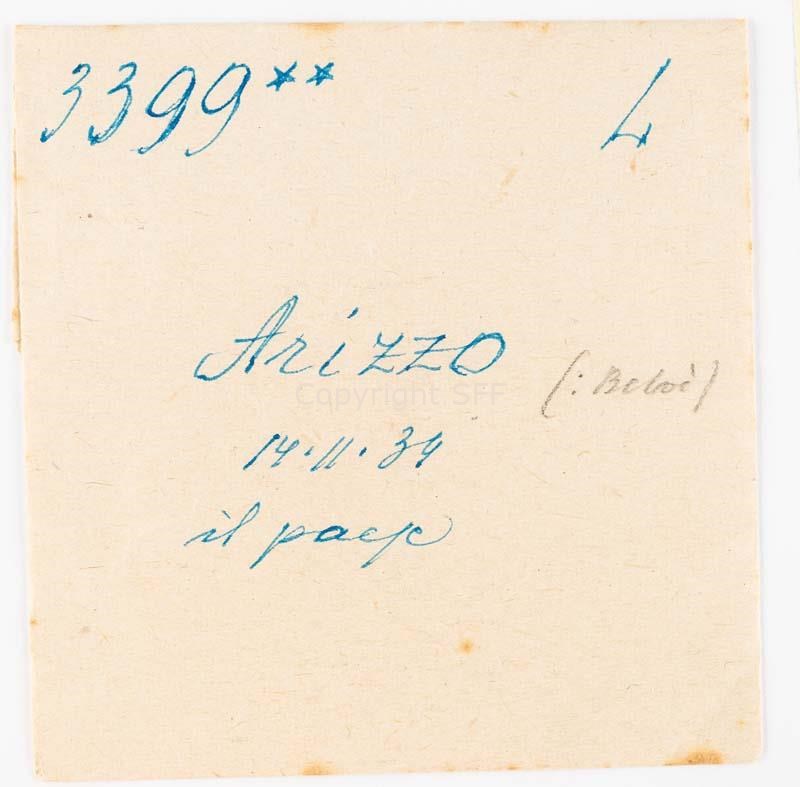 3399** L
Arizzo (: Belvi)
Copyright SFF
14.11.34
il paese